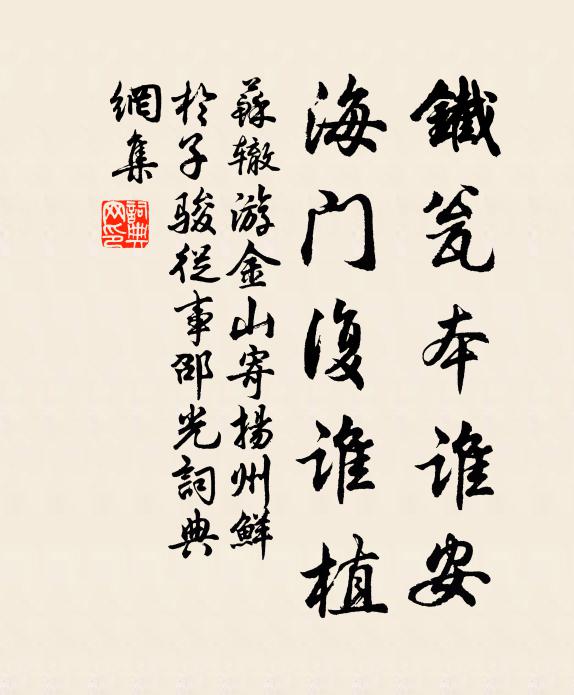 鐵瓮本誰安
海門復誰植
蘇辙游金山寄揚州鮮
於子駿從事邵光詞典
網集
詞典
网印